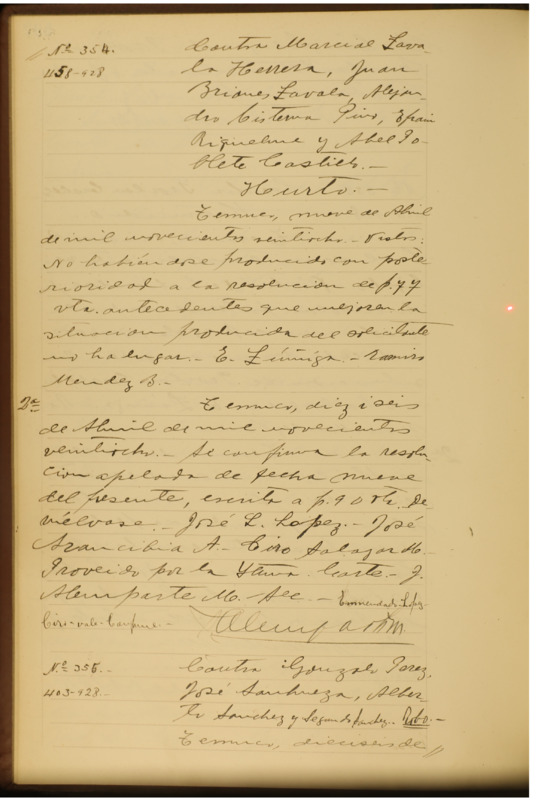 Nº 354. Contra Marcial Zava-
458-928 la Herrera, Juan
Briones Zavala, Alejan-
dro Cisterna Pino, Efrain
Riquelme y Abel Po-
blete Castillo.-
Hurto.-
Temuco, nueve de Abril
de mil novecientos veintiocho.- Vistos:
No habiéndose producido con poste-
rioridad a la resolucion de f. 77
vta. antecedentes que mejoren la
situacion producida del solicitante
no ha lugar.- E. Zúñiga.- Ramiro
Mendez B.-
2ª Temuco, diez i seis
de Abril de mil novecientos
veintiocho.- Se confirma la resolu-
cion apelada de fecha nueve
del presente, escrita a f. 90 vta. De-
vuélvase.- José L. Lopez.- José
Arancibia A.- Ciro Salazar M.-
Proveido por la Iltma. Corte.- J.
Alemparte M. Sec.- Enmendado-Lopez-
Ciro-vale-Conforme.-
Nº 355.- Contra Gonzalo Perez,
403-928.- José Sanhueza, Alber-
to Sanchez y Segundo Sanchez.- Robo.-
Temuco, dieciseis de